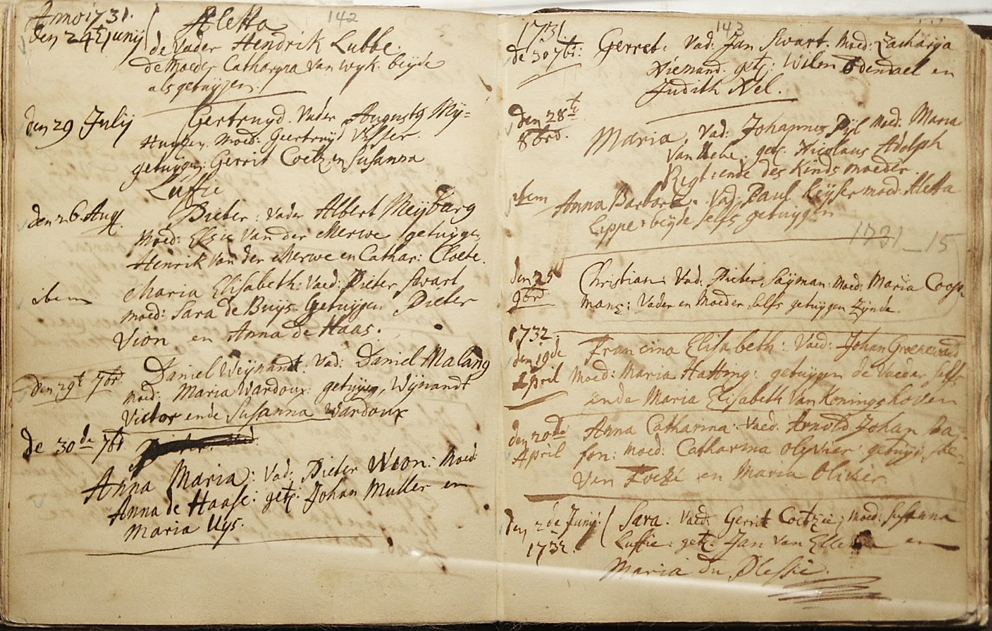 142
Anno 1731.
den 24e Junij
Aletta
de Vader Hendrik Lubbe
de Moeder Catharyna van Wyk: beyde
als getuijgen.
den 29 Julij
Gertruyd. Vader Augustus My-
Moed: Geertruyd Visser.
getuijgen: Gerrit Coetz en Susanna
Luffie
den 26 Aug
Pieter: Vader Albert Meyburg
Moed: Elsie van der Merwe getuijgen
Henrik van der Merwe en Cathar: Cloete.
ibem
Maria Elisabeth: Vaed: Pieter Swart
moed: Sara de Buys. Getuijgen Pieter
Vion en Anna de Haas.
den 29t 7br
Daniel Weynandt. Vad: Daniel Malang
moed: Maria Vardoux: getuijg, Wynandt
Victor ende Susanna Vardoux
de 30de 7br
Anna Maria: Vad: Pieter Wion: Moed
Anna de Haase: get: Johan Muller en
Maria Uys.
143
1731
de 30 7br
Gerret: Vad: Jan Swart. Moed: Zacharya
Niemand. get: Willem Odendael en
Judith Nel.
den 28t
8br
Maria, Vad: Johannes Pyl Moed: Maria
get: Nicolaus Adolph
ende des Kinds moeder
ibem
Anna Barbara. Vad: Paul Keyser moed: Aletta
Leppe beyde selfs getuijgen
1731_15
den 25
9br
Christian: Vad: Pieter Saijman: Moed: Maria Coop-
mans: Vader en Moeder selfs getuijgen zijnde.
1732
den 19de
April
Francina Elisabeth: Vaed: Johan Groenewald
Moed: Maria Hattong: getuijgen de Vader self
ende Maria Elisabeth van Koningshoven
den 20de
April
Anna Catharina: Vaed: Arnold Johan Ba-
son: moed: Catharina Olivier
en Maria Olivier
den 2de Junij
1732.
Sara: Vaed: Gerrit Coetzie; Moed: Susanna
Luffie: get: Jan van Elle en
Maria du Plessie.